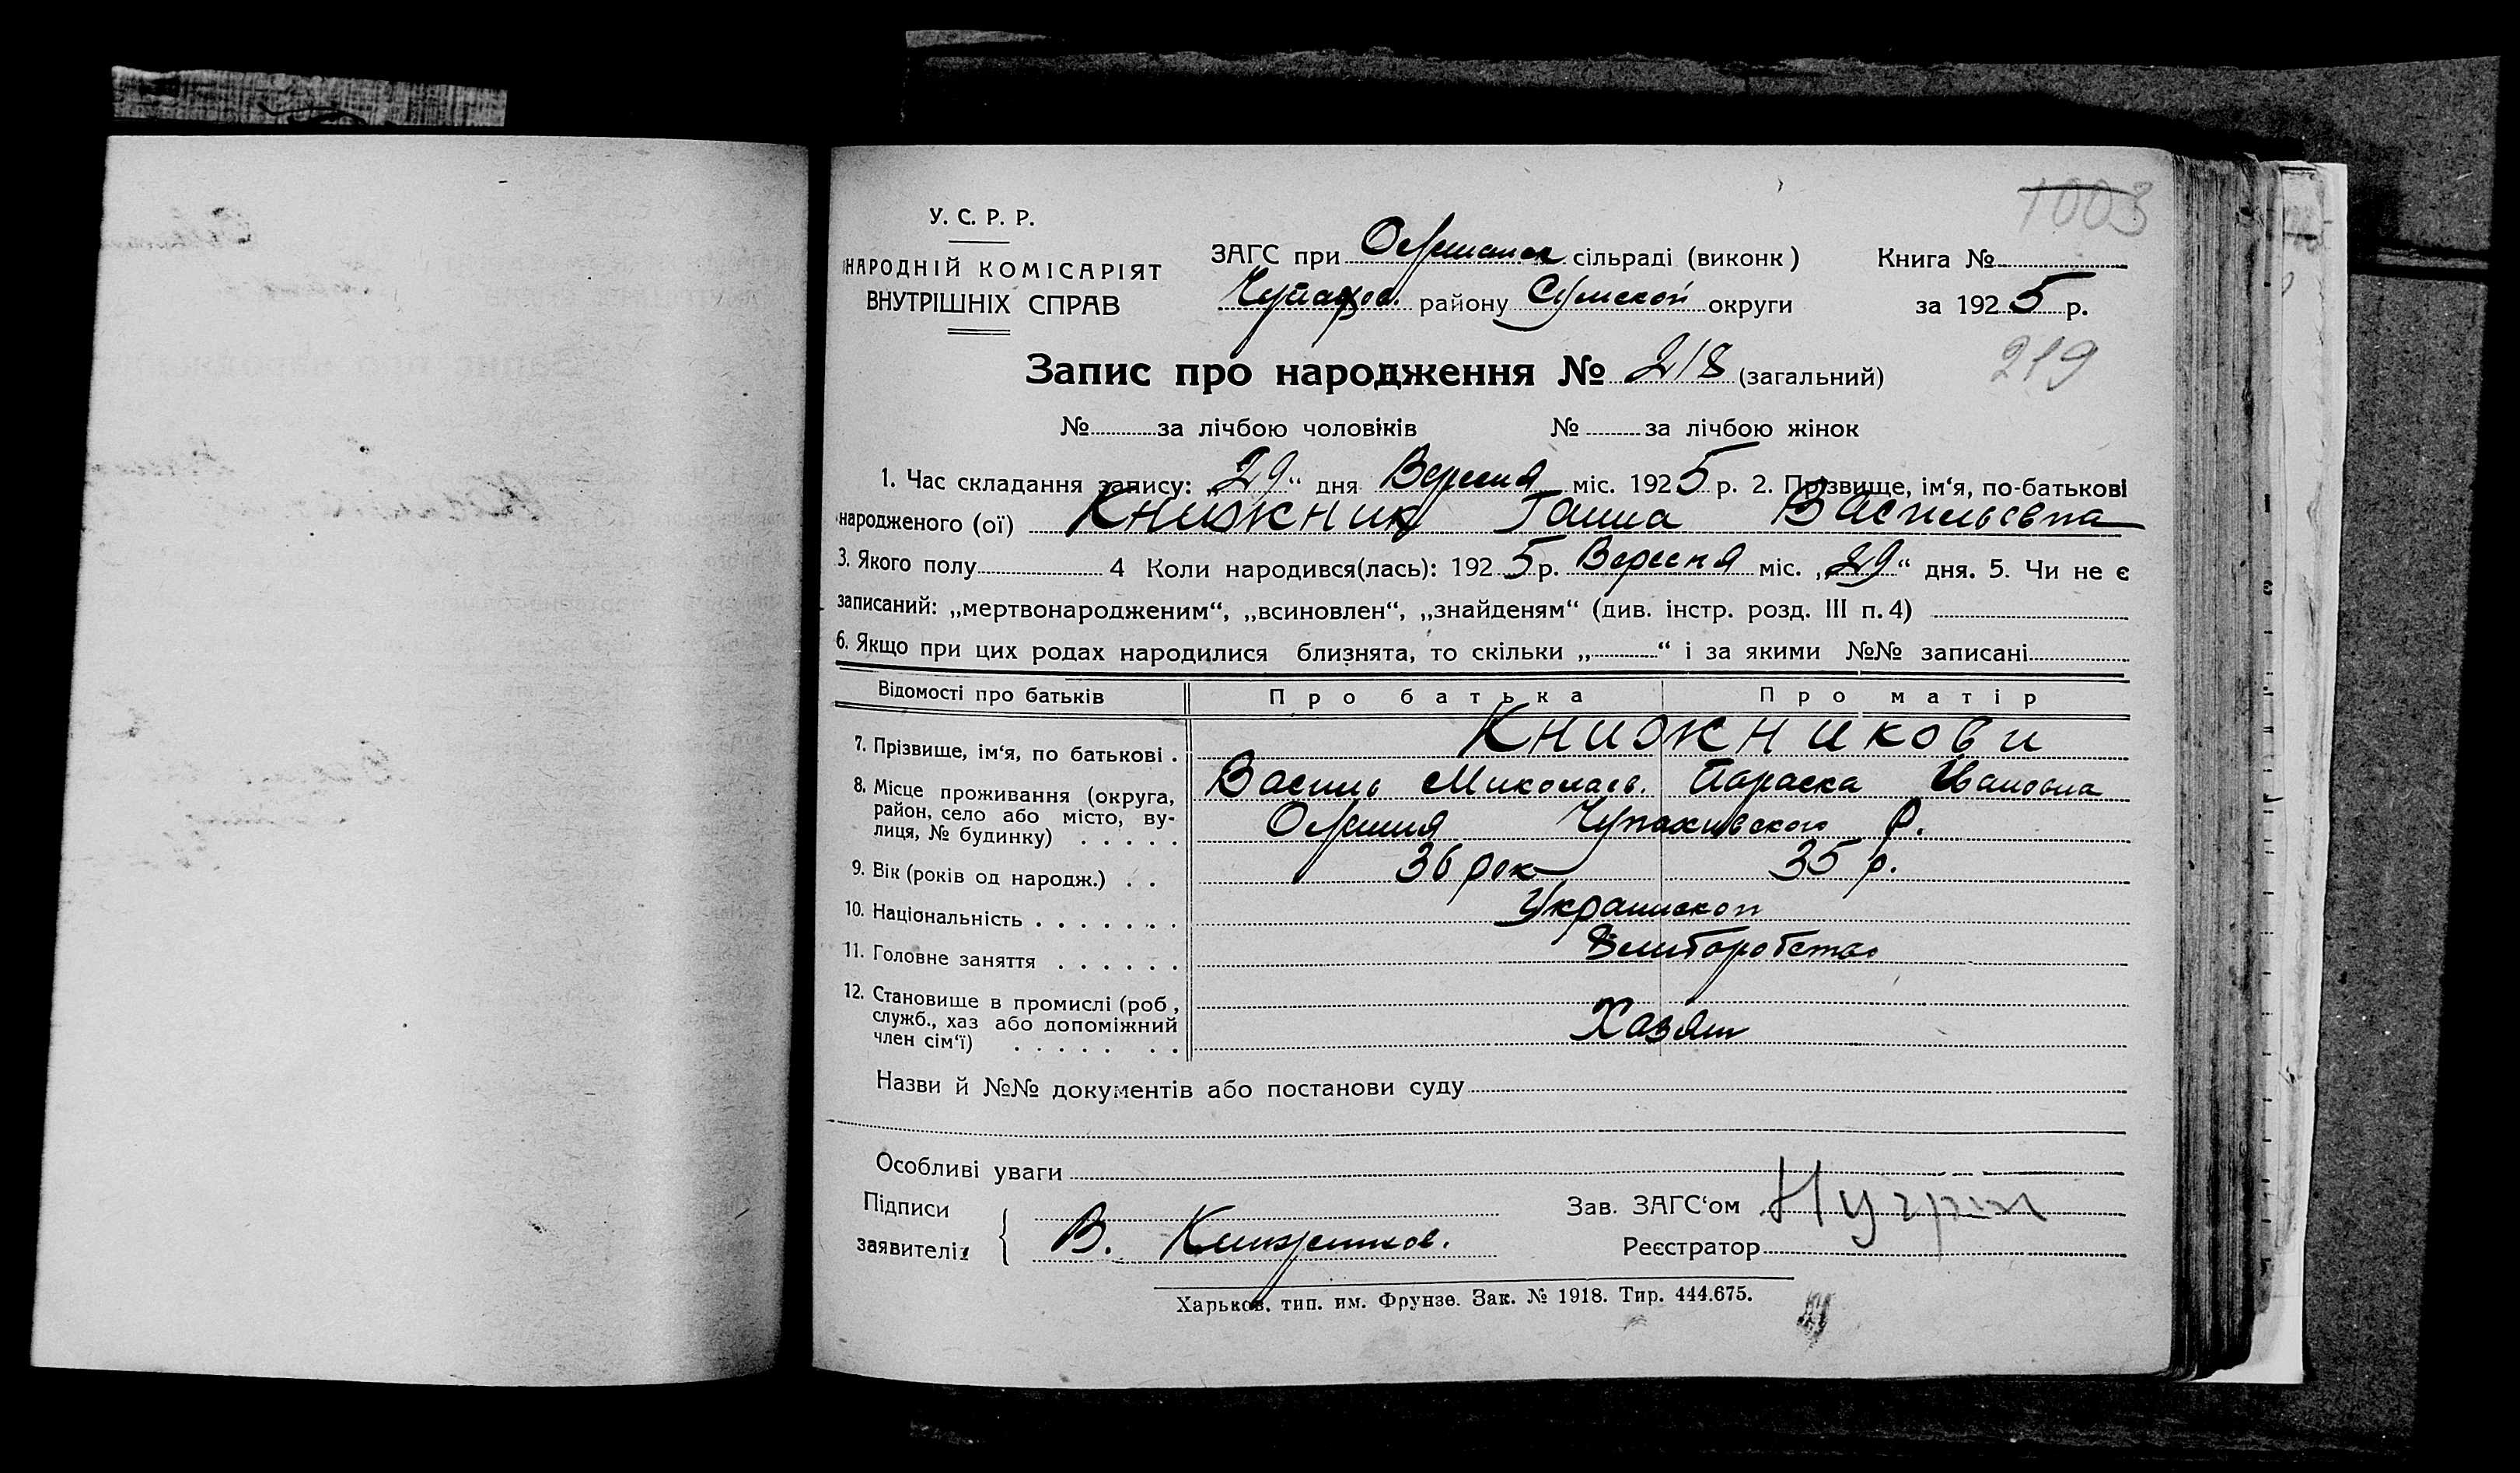 1003
У. С. Р. Р.
НАРОДНІЙ КОМІСАРІЯТ
ВНУТРІШНІХ СПРАВ
ЗАГС при сільраді (виконк)
Чупахов. району Сумской округи
Книга №
за 1925 р.
Запис про народження № 218 (загальний)
219
№ за лічбою чоловіків № за лічбою жінок
1. Час складання запису: „29“ дня Вересня міс. 1925 р. 2. Прізвище, ім‘я, по-батькові
народженого (ої) Книжник Ганна Васильевна
3. Якого полу 4 Коли народився(лась): 1925 р. Вересня міс. „29“ дня. 5. Чи не є
записаний: „мертвонародженим“, „всиновлен“, „знайденям“ (див. інстр. розд. III п. 4)
6. Якщо при цих родах народилися близнята, то скільки „ “ і за якими №№ записані
Відомості про батьків Про батька Про матір
7. Прізвище, ім‘я, по батькові . Книжникови
Василь Миколаев. Параска Ивановна
8. Місце проживання (округа,
район, село або місто, ву-
лиця, № будинку) . . . . . Олешня Чупахивского р.
9. Вік (років од народж.) . . 36 рок 35 р.
10. Національність . . . . . . .
11. Головне заняття . . . . . .
12. Становище в промислі (роб,
служб., хаз або допоміжний
член сім‘ї) . . . . . . . Хазяин
Назви й №№ документів або постанови суду
Особливі уваги
Підписи
заявителів
В. Книжников.
Зав. ЗАГС‘ом
Реєстратор
Харьков, тип. им. Фрунзе. Зак. № 1918. Тир. 444.675.